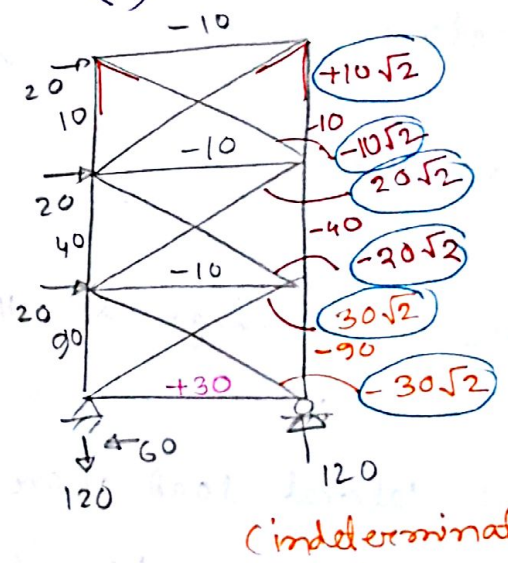 -10
20
+10√2
10
-10
-10√2
-10
20√2
20
-40
40
-20√2
-10
20
30√2
90
-90
+30
-30√2
60
120
120
(indeterminat